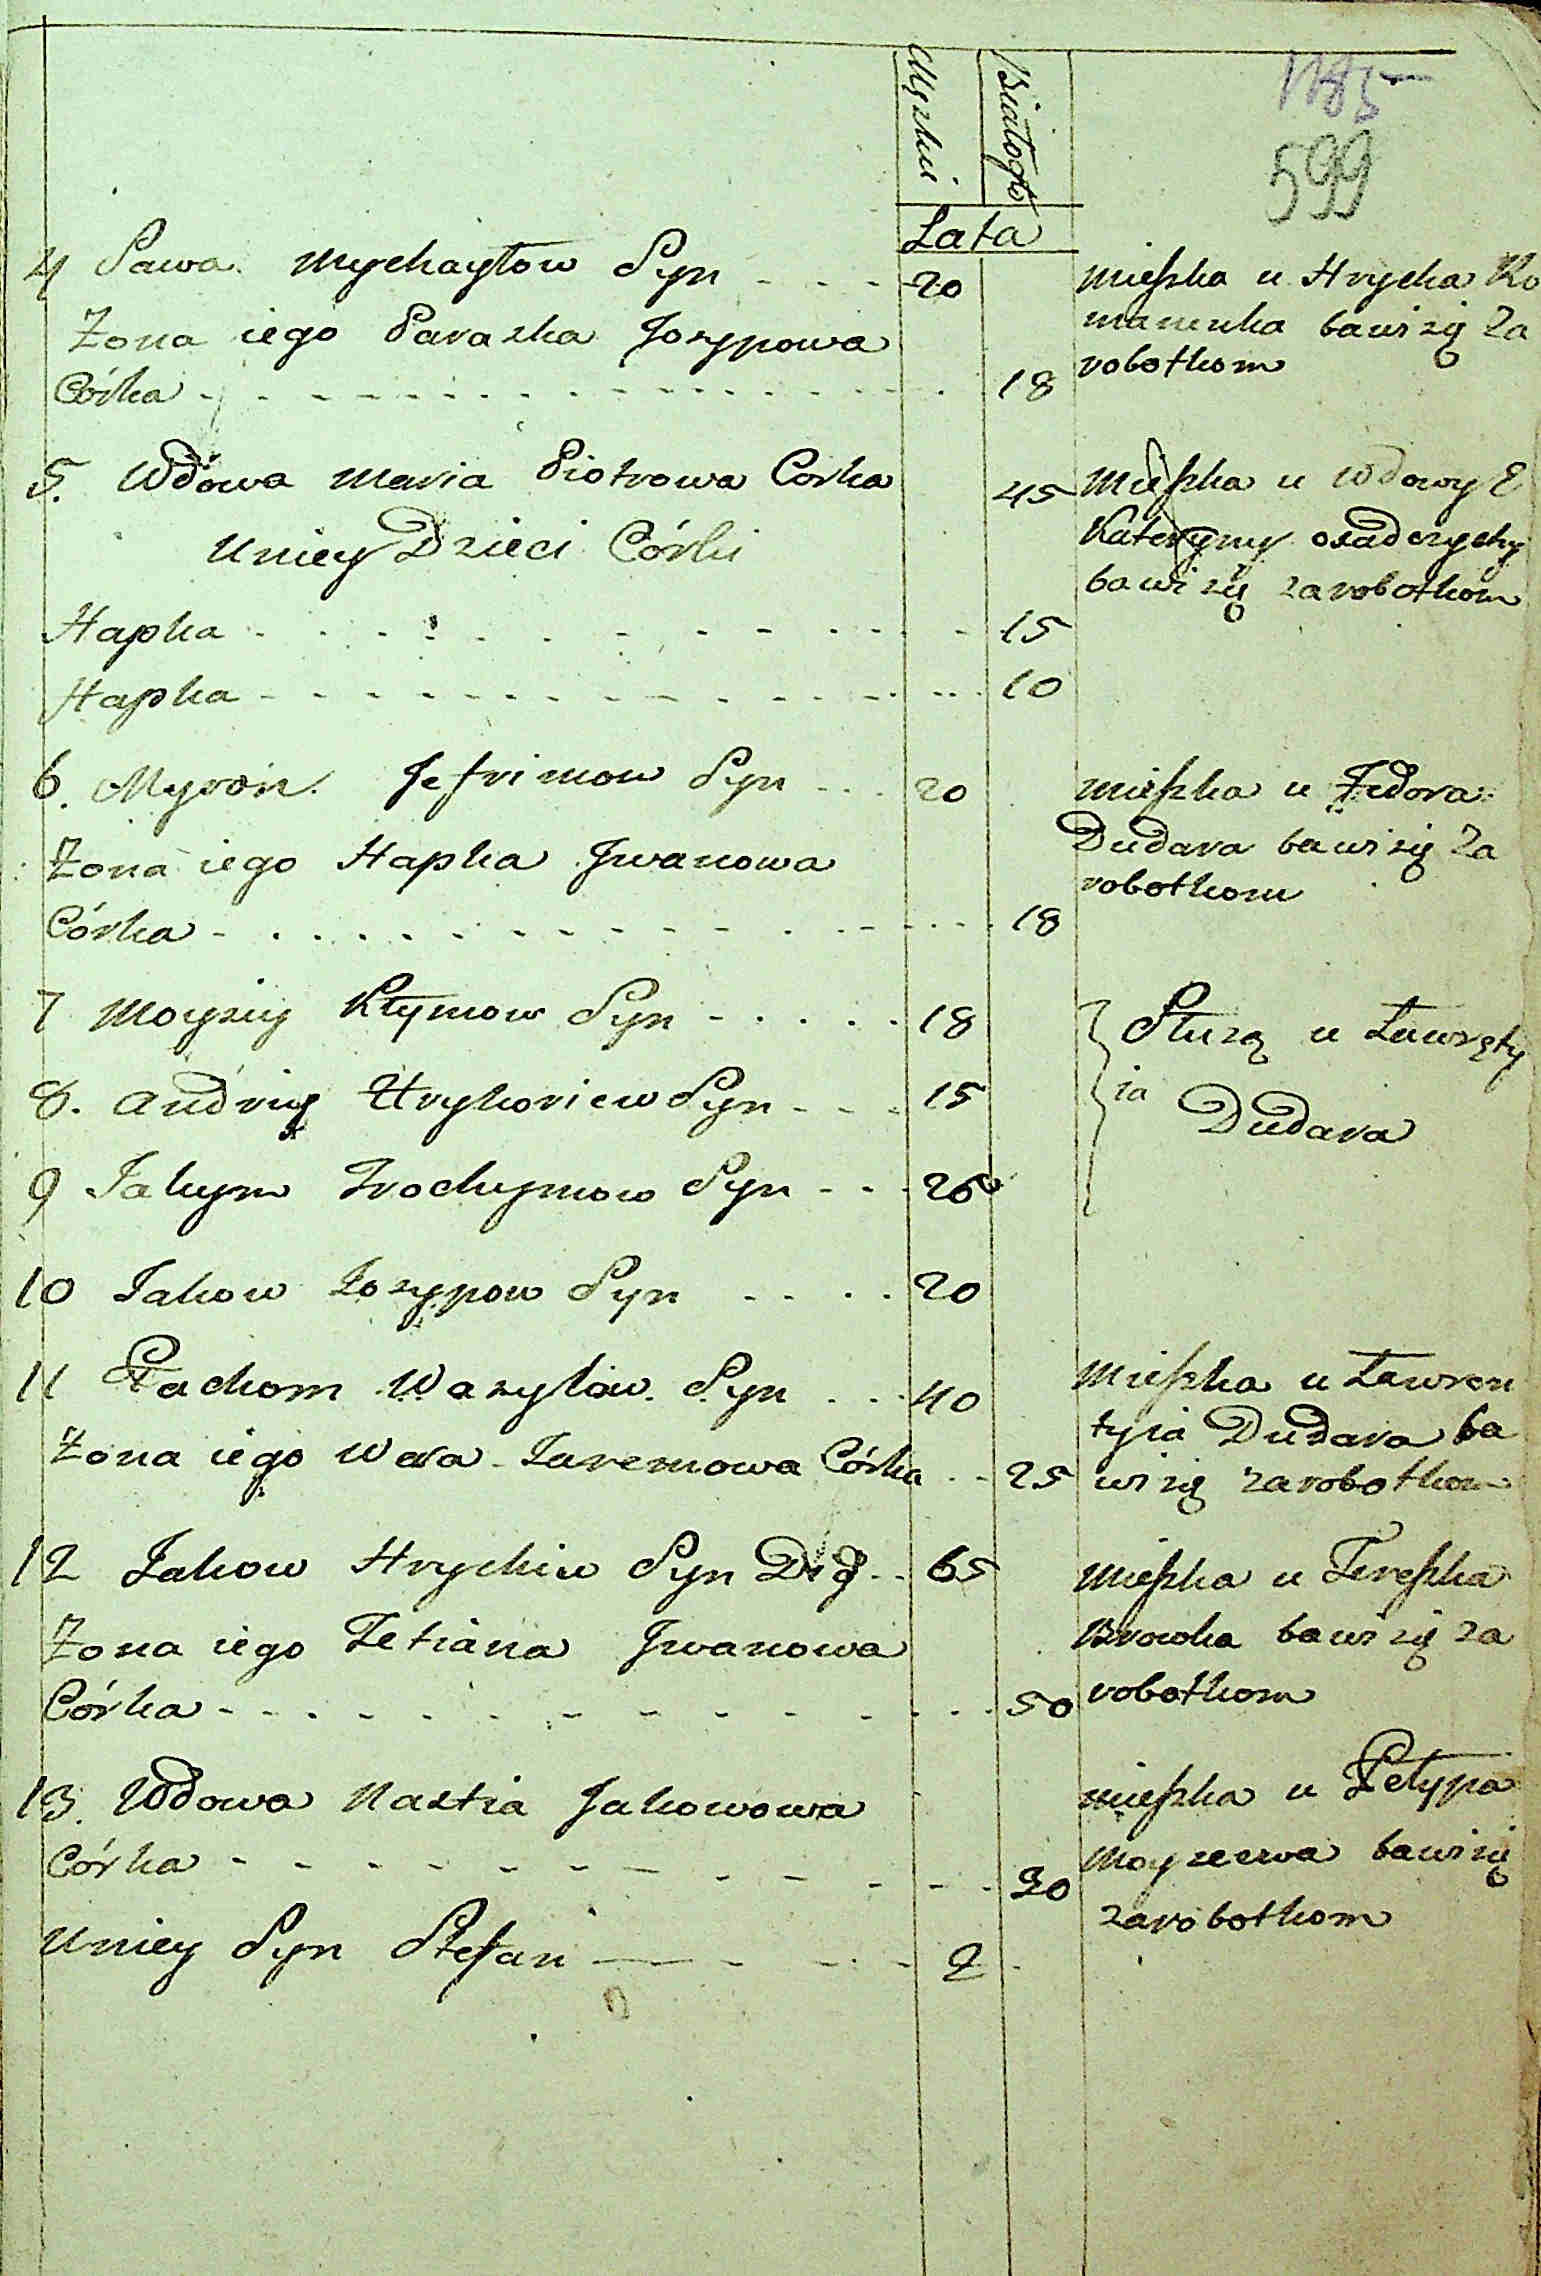 Męzkie Białogło
1185
599
Lata
4 Sawa Mychayłow Syn - - - 20 mieszka u Hrycka Ro
Żona iego Paraska Josypowa manenka bawi się Za
Córka - - - 18 robotkom
5. Wdowa Maria Piotrowa Corka 45 Mieszka u Wdowy E
Uniey Dzieci Córki Kateryny osadczychy
bawi się zarobotkom
Hapka - - - 15
Hapka - - - 10
6. Myron Jefrimow Syn - - - 20 mieszka u Fedora
Żona iego Hapka Jwanowa Dudara bawi się Za
Córka - - - 18 robotkom
7 Moysiy Kłymow Syn - - - 18 Służą u Ławręty
8. Andriy Hryhoriew Syn - - - 15 ia Dudara
9 Jakym Trochymow Syn - - - 26
10 Jakow Josypow Syn - - - 20
11 Pachom Wasylów Syn - - - 40 Mieszka u Ławron
Żona iego Wera Jaremowa Córka - - 25 tyia Dudara ba
wi się zarobotkom
12 Jakow Hryckiw Syn - - 65 Mieszka u Tereszka
Żona iego Tetiana Jwanowa Browka bawi się za
Córka - - - 50 robotkom
13. Wdowa Nastia Jakowowa mieszka u Petypa
Córka - - - 30 Moyseewa bawi się
zarobotkom
Uniey Syn Stefan - - - 2